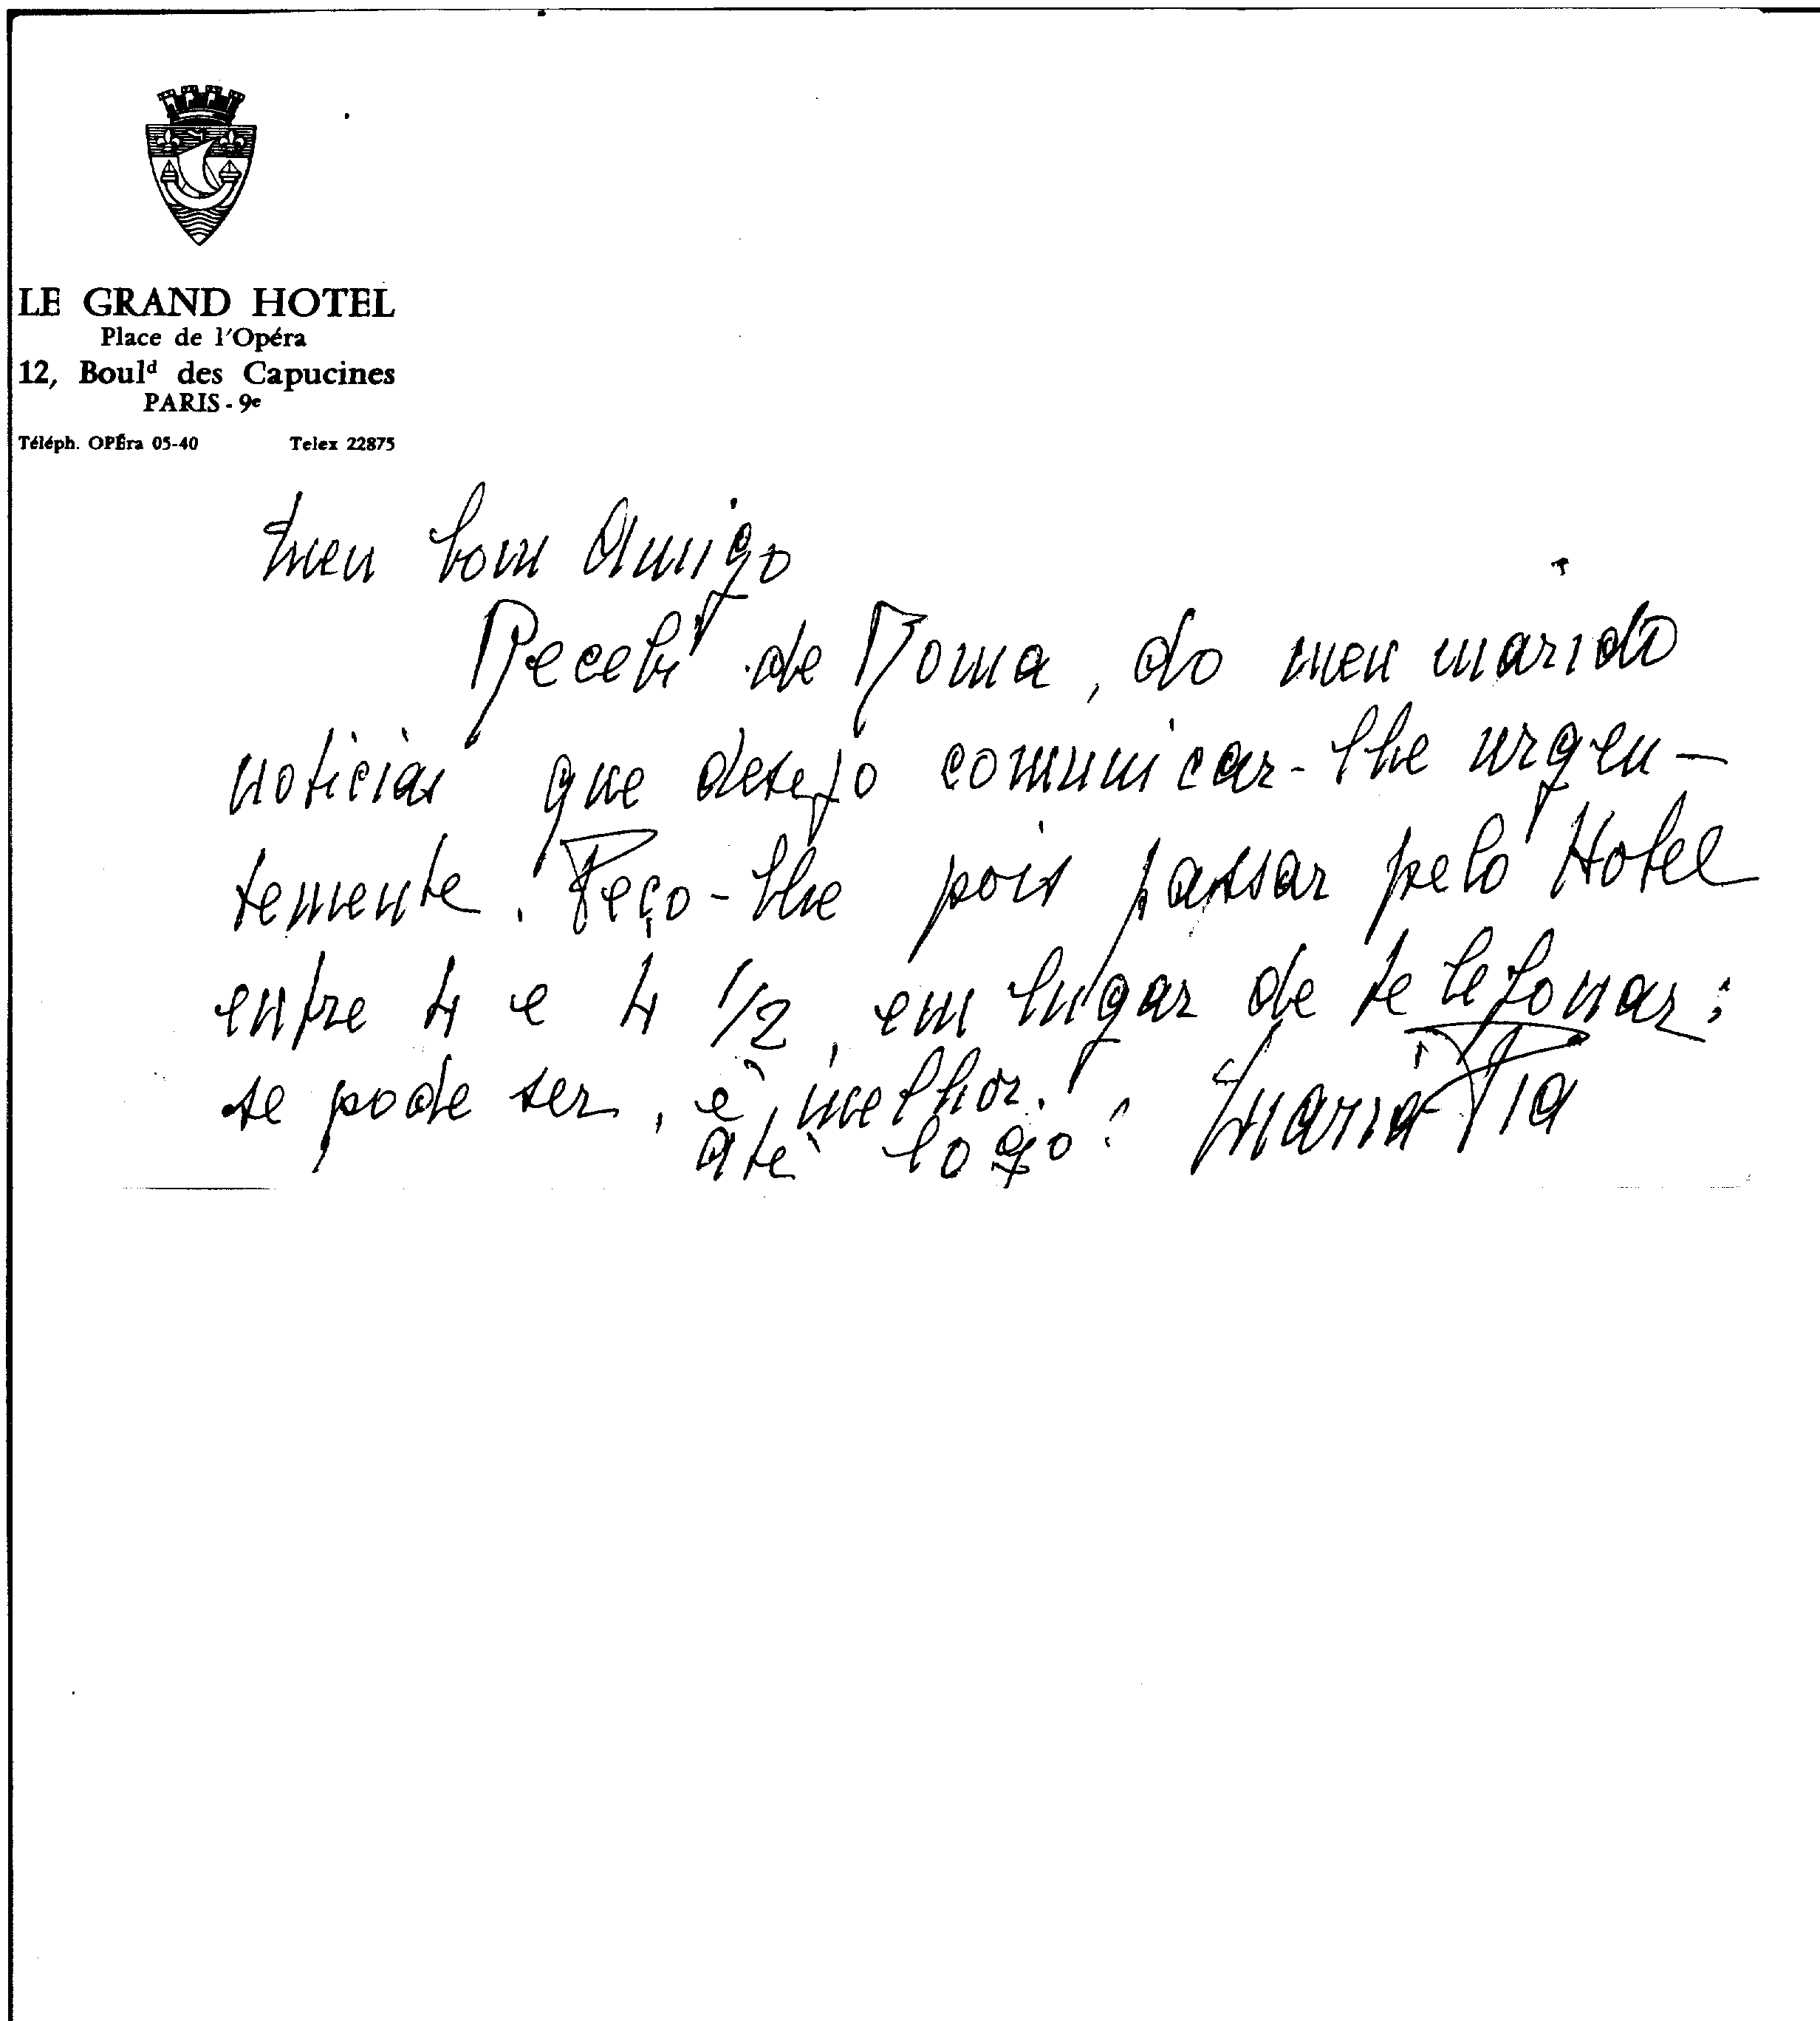 LE GRAND HOTEL
Place de l'Opéra
12, Boulᵈ des Capucines
PARIS - 9ᵉ
Téléph. OPÉra 05-40 Telex 22875
Meu bom Amigo
Recebi de Roma, do meu marido
noticias que desejo comunicar-lhe urgen-
temente. Peço-lhe pois passar pelo Hotel
entre 4 e 4 1/2, em lugar de telefonar:
se pode ser, é melhor.
até logo! Maria Pia